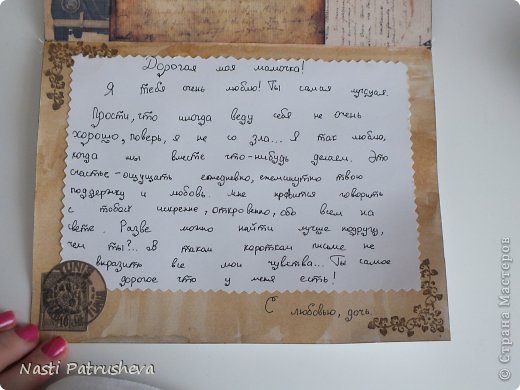 Дорогая моя мамочка!
Я тебя очень люблю! Ты самая лучшая.
Прости, что иногда веду себя не очень
хорошо, поверь, я не со зла... Я так люблю,
когда мы вместе что-нибудь делаем. Это
счастье - ощущать ежедневно, ежеминутно твою
поддержку и любовь. Мне нравится говорить
с тобой искренне, откровенно, обо всем на
свете. Разве можно найти лучше подругу,
чем ты?.. В таком коротком письме не
выразить все мои чувства... Ты самое
дорогое что у меня есть!
С любовью, дочь.
Nasti Patrusheva
© Страна Мастеров